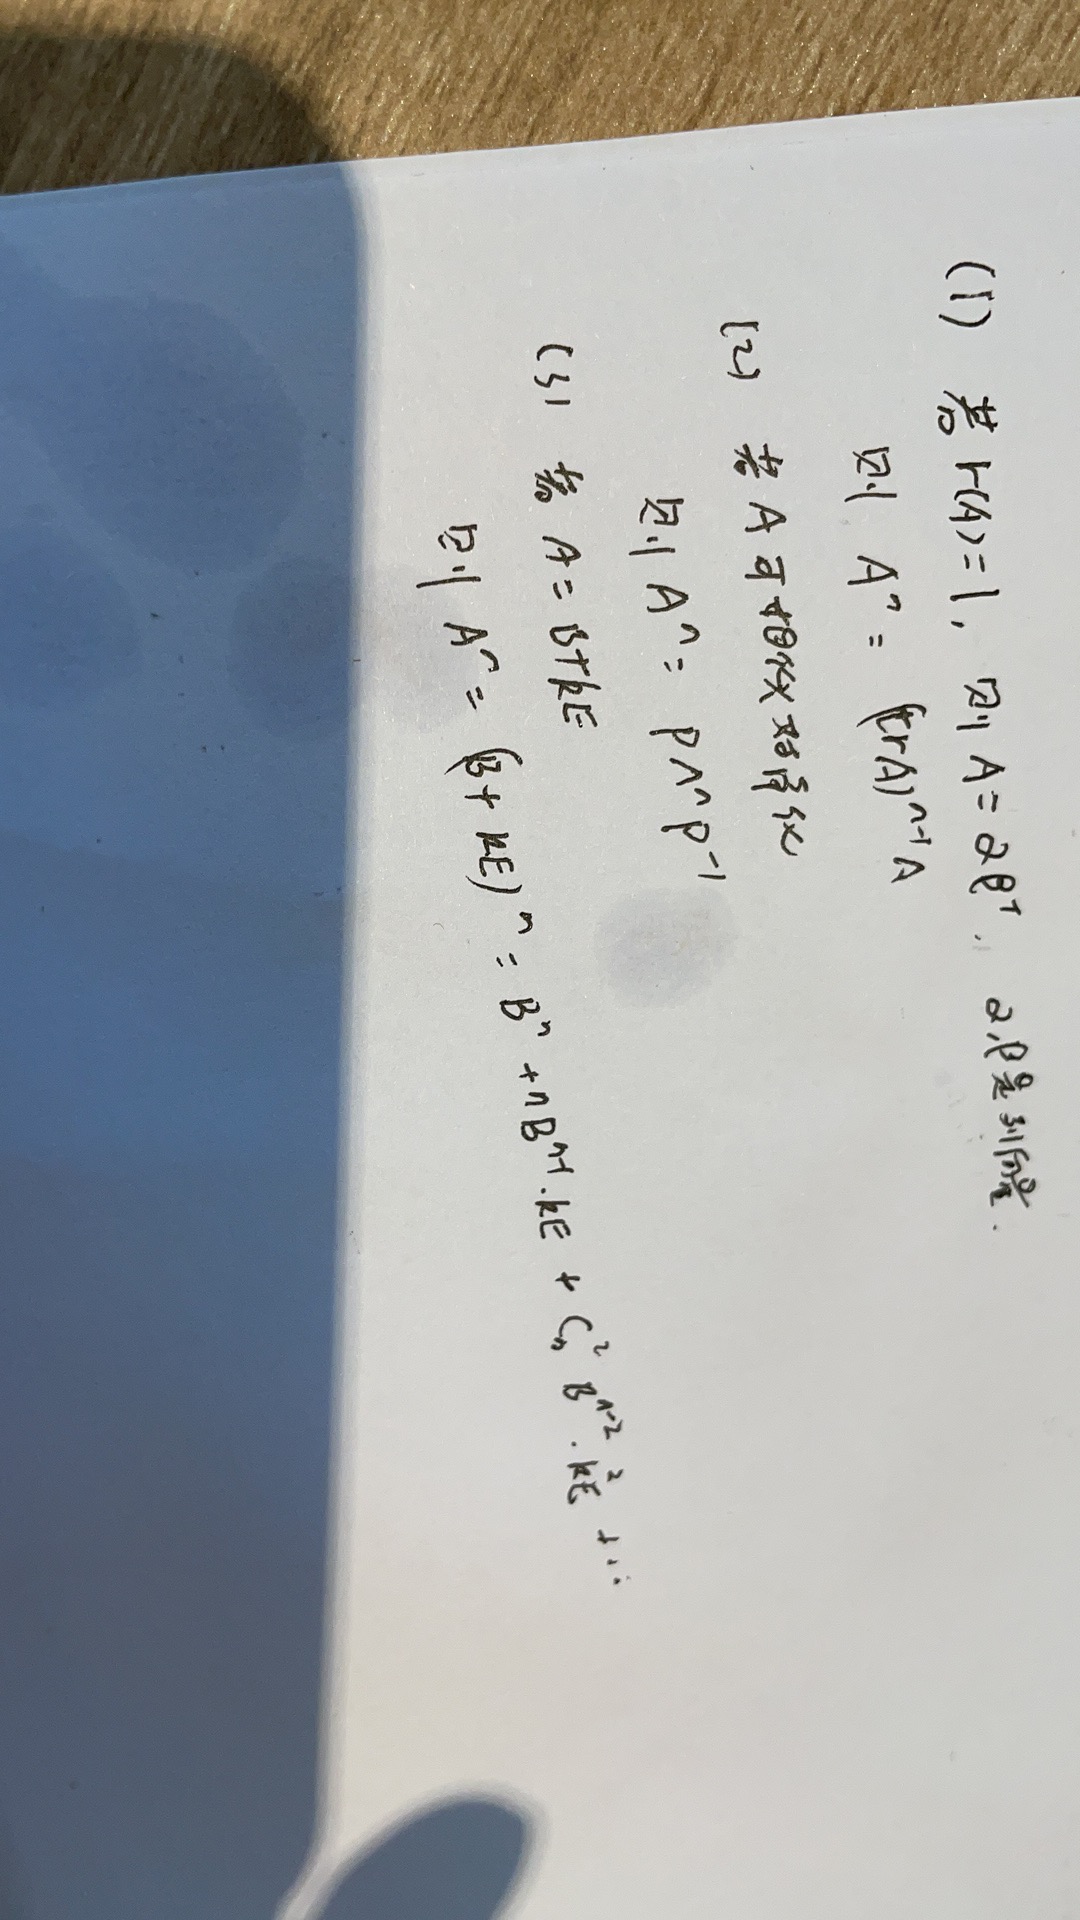 (1) 若r(A)=1, 则A=αβᵀ, α,β是列向量.
则 Aⁿ = (trA)ⁿ⁻¹A
(2) 若A可相似对角化
则Aⁿ = PΛⁿP⁻¹
(3) 若 A=B+kE
则 Aⁿ = (B+kE)ⁿ = Bⁿ + nBⁿ⁻¹·kE + Cₙ²Bⁿ⁻²·k²E + ...